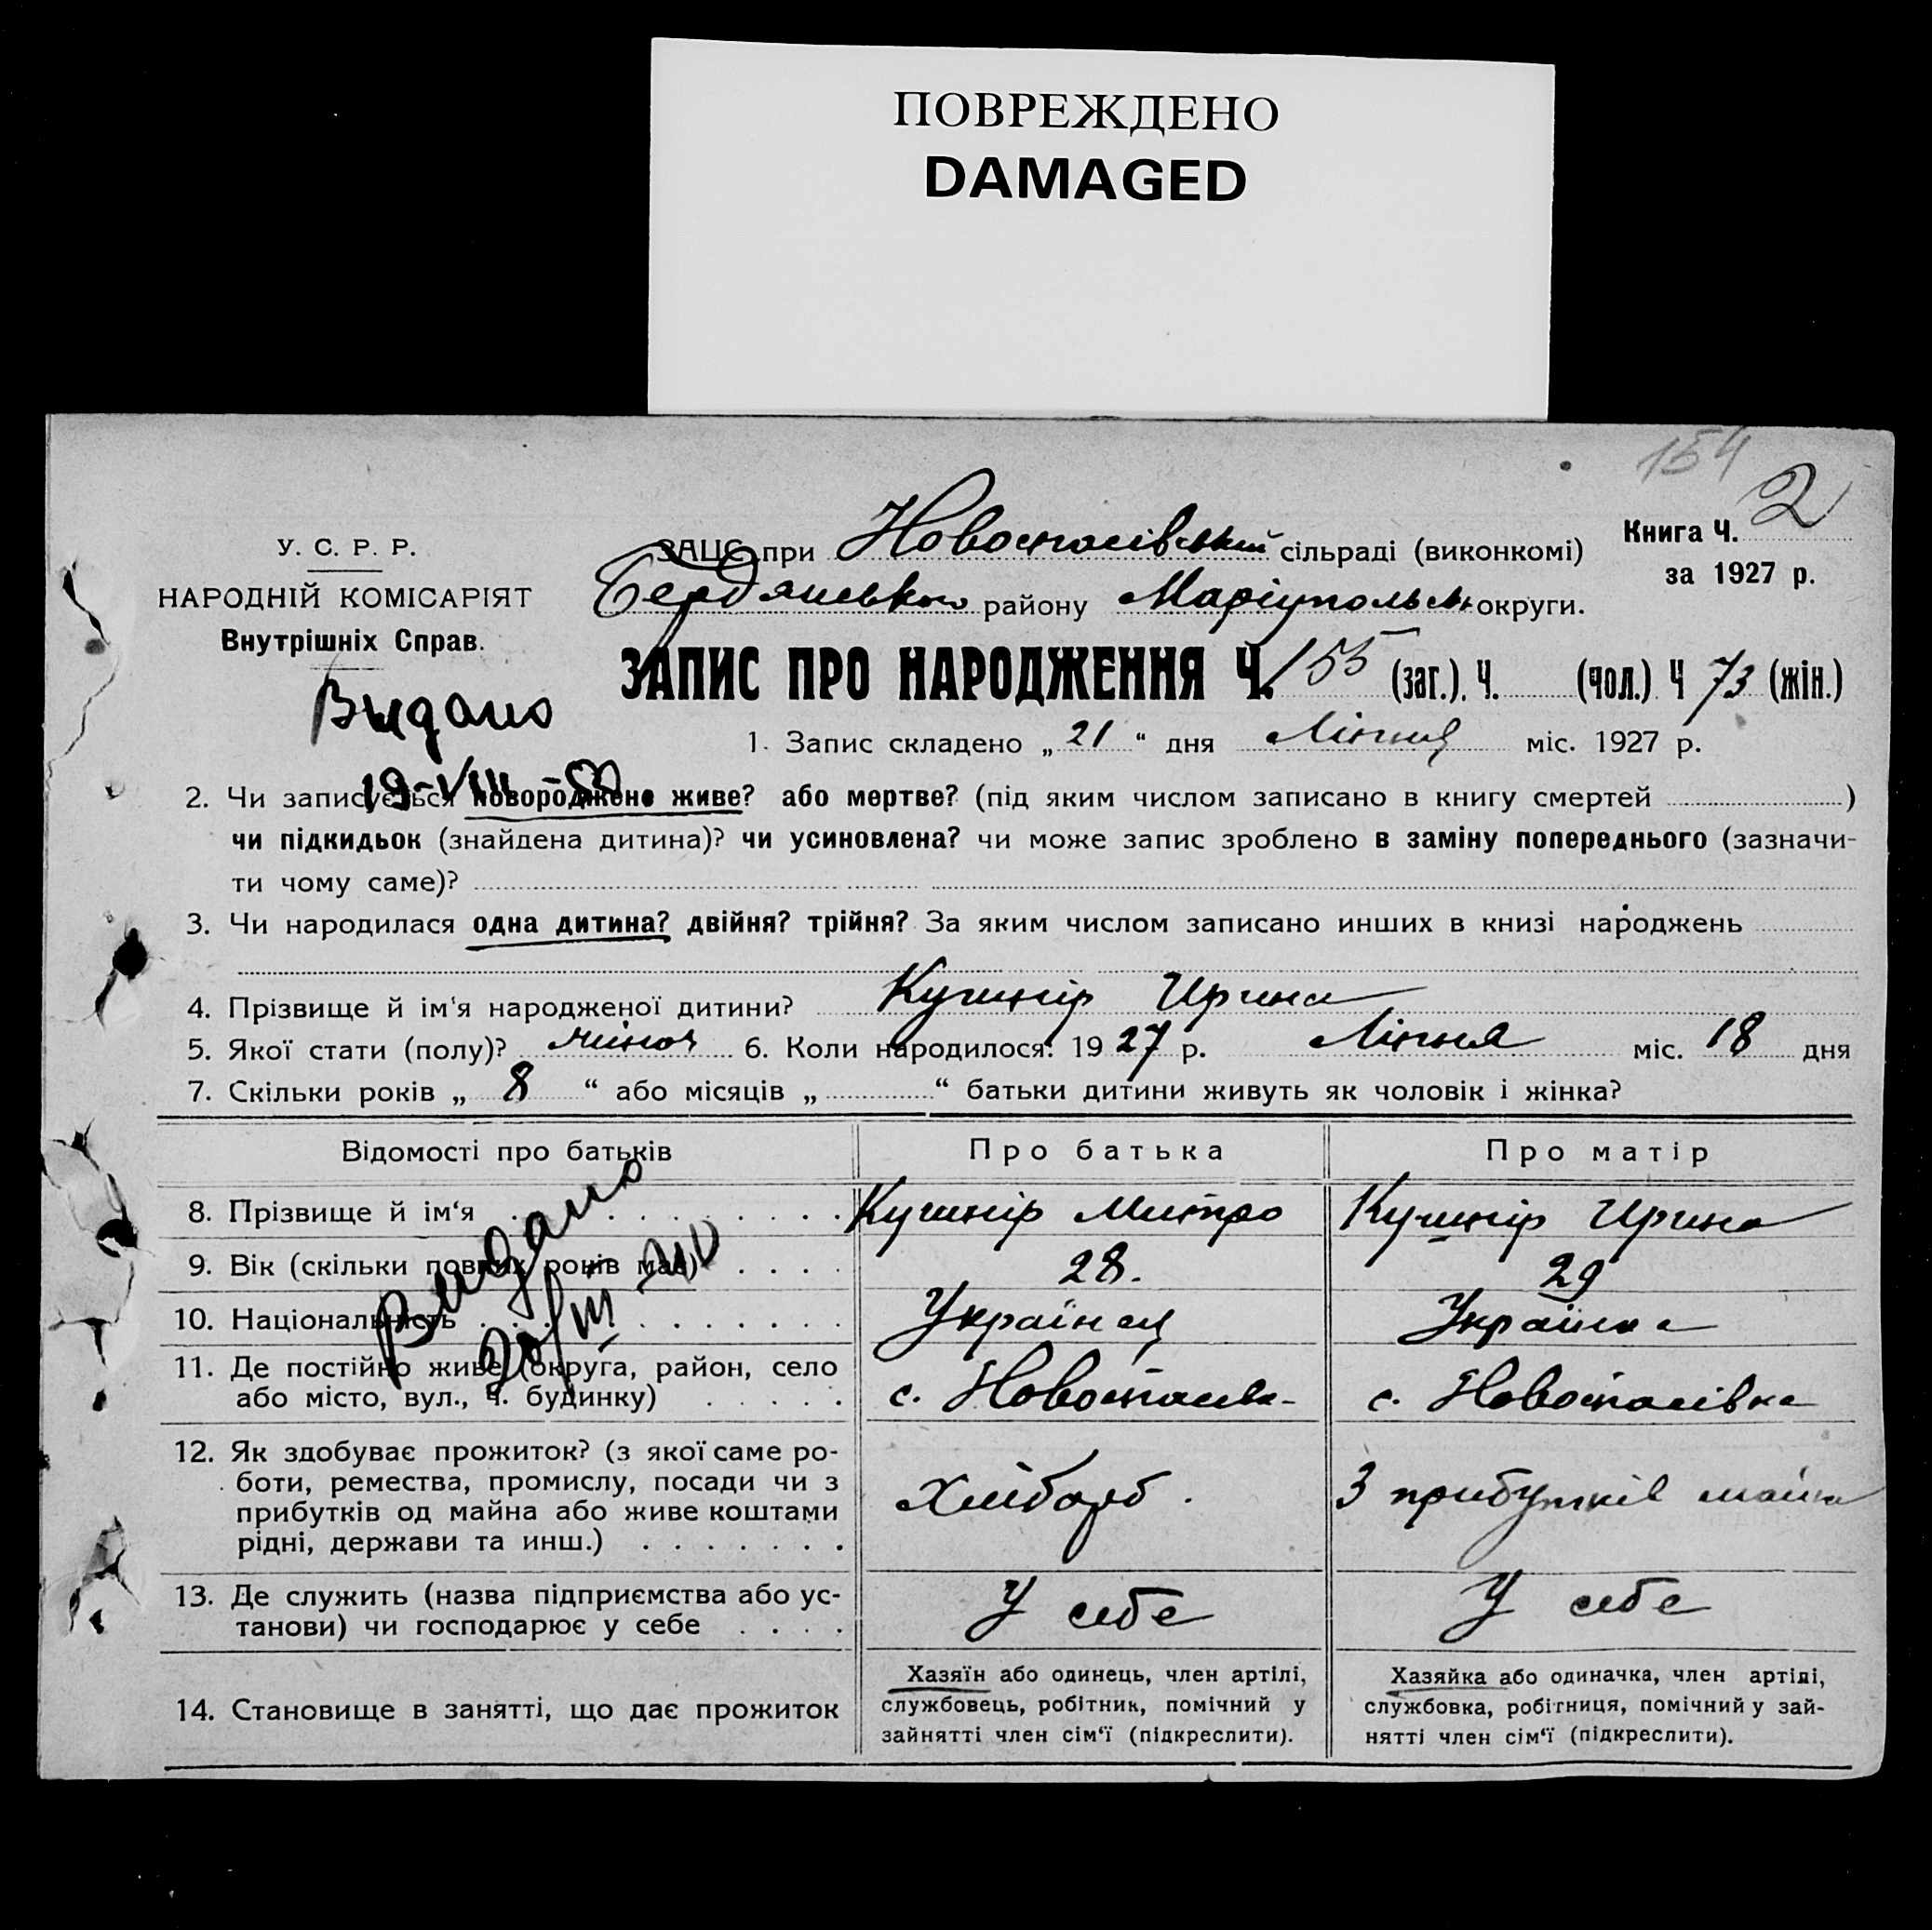 ПОВРЕЖДЕНО
DAMAGED
154
У. С. Р. Р.
НАРОДНІЙ КОМІСАРІЯТ
Внутрішніх Справ.
ЗАЦС при Новоспасівській сільраді (виконкомі)
Книга Ч. 2
за 1927 р.
Бердянського району Маріупольськ округи.
ЗАПИС ПРО НАРОДЖЕННЯ Ч. 155 (заг.). Ч. (чол.) Ч 73 (жін.)
Выдано
19-VIII-50
1. Запис складено „ 21 “ дня Липня міс. 1927 р.
2. Чи записується новороджене живе? або мертве? (під яким числом записано в книгу смертей )
чи підкидьок (знайдена дитина)? чи усиновлена? чи може запис зроблено в заміну попереднього (зазначи-
ти чому саме)?
3. Чи народилася одна дитина? двійня? трійня? За яким числом записано инших в книзі народжень
4. Прізвище й ім‘я народженої дитини? Кушнір Ирина
5. Якої стати (полу)? жіноч 6. Коли народилося: 1927 р. Липня міс. 18 дня
7. Скільки років „ 8 “ або місяців „ “ батьки дитини живуть як чоловік і жінка?
Відомості про батьків Про батька Про матір
8. Прізвище й ім‘я Кушнір Митро Кушнір Ирина
9. Вік (скільки повних років має) 28. 29
10. Національність Українец Українка
Видано
20/III-40
11. Де постійно живе (округа, район, село
або місто, вул., ч. будинку) с. Новоспасівк- с. Новоспасівка
12. Як здобуває прожиток? (з якої саме ро-
боти, ремества, промислу, посади чи з
прибутків од майна або живе коштами
рідні, держави та инш.)
Хлібороб.
З прибутків майна
13. Де служить (назва підприємства або ус-
танови) чи господарює у себе
У себе У себе
14. Становище в занятті, що дає прожиток
Хазяїн або одинець, член артілі,
службовець, робітник, помічний у
зайнятті член сім‘ї (підкреслити).
Хазяйка або одиначка, член артілі,
службовка, робітниця, помічний у зай-
нятті член сім‘ї (підкреслити).